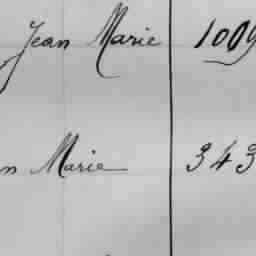 Jean Marie 1009
n Marie 343